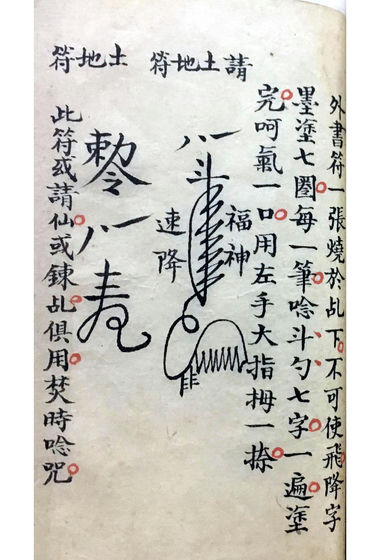 外書符一張燒於乩下不可使飛降字
墨塗七圈每一筆唸斗勺七字一遍塗
完呵氣一口用左手大指拇一捺
請土地符
福神
斗
速降
土地符
此符或請仙或鍊乩俱用焚時唸咒